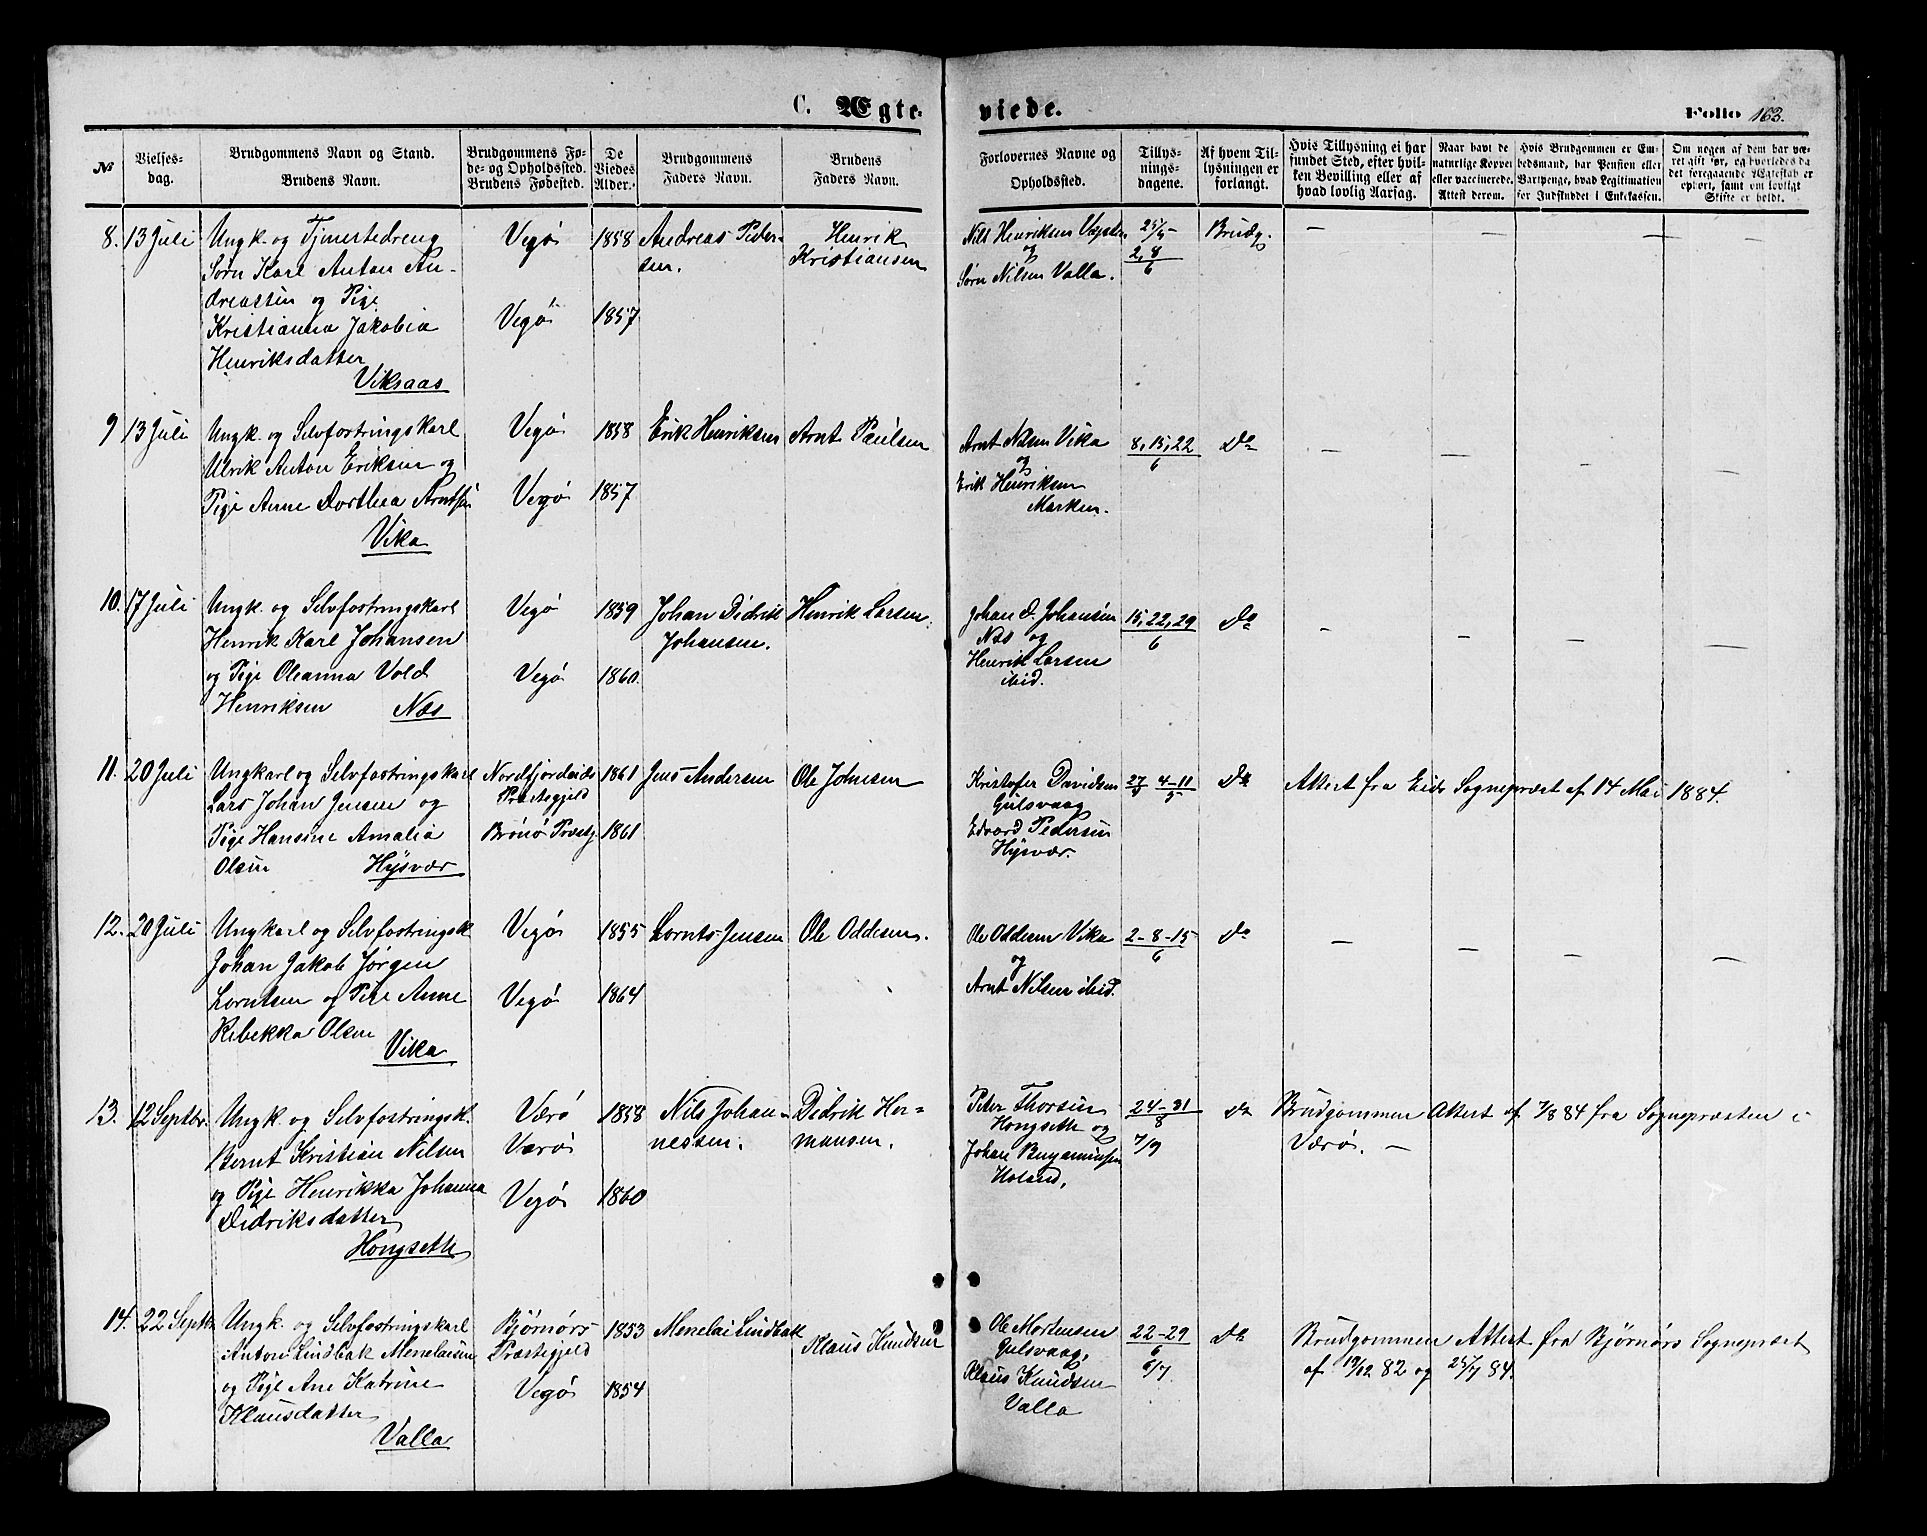 C. Ægte-
viede.
Folio 163.
№
Vielses-
dag.
Brudgommens Navn og Stand.
Brudens Navn.
Brudgommens Fø-
de- og Opholdsted.
Brudens Fødested.
De
Viedes
Alder.
Brudgommens
Faders Navn.
Brudens
Faders Navn.
Forlovernes Navne og
Opholdsted.
Tillys-
nings-
dagene.
Af hvem Til-
lysningen er
forlangt.
Hvis Tillysning ei har
fundet Sted, efter hvil-
ken Bevilling eller af
hvad lovlig Aarsag.
Naar havt de
naturlige Kopper
eller vaccinerede.
Attest derom.
Hvis Brudgommen er Em-
bedsmand, har Pension eller
Vartpenge, hvad Legitimation
for Indskuddet i Enkekassen.
Om nogen af dem har væ-
ret gift før, og hvorledes da
det foregaaende Ægteskab er
ophørt, samt om lovligt
Skifte er holdt.
8. 13 Juli
Ungk. og Tjenestedreng
Sørn Karl Anton An-
dreassen og Pige
Kristianna Jakobia
Henriksdatter
Viksaas
Vegø
Vegø
1858
1857
Andreas Peder-
sen.
Henrik
Kristiansen
Nils Henriksen
og
Sørn Nilsen Valla.
25/5
2, 8
6
Brudg.
— — — —
9 13 Juli
Ungk. og Selvfostringskarl
Ulrik Anton Eriksen og
Pige Anne Dorthea Arntsen
Vika
Vegø
Vegø
1858
1857
Erik Henriksen
Arnt Paulsen
Arnt Nilsen Vika
og
Erik Henriksen
Marken.
8, 15, 22
6
Do
— — — —
10. 17 Juli
Ungk. og Selvfostringskarl
Henrik Karl Johansen
og Pige Oleanna Vold
Henriksen Næs
Vegø
Vegø
1859
1860.
Johan Didrik
Johansen.
Henrik Larsen.
Johan D. Johansen
Næs og
Henrik Larsen
ibid.
15, 22, 29
6
Do
— — — —
11. 20 Juli
Ungkarl og Selvfostringskarl
Lars Johan Jensen og
Pige Hansine Amalia
Olsen Hysvær
Nordfjordeids
Præstegjeld
Brønø Præstg
1861
1861
Jens Andersen
Ole Johnsen
Kristofer Davidsen
Gulsvaag
Edvard Pedersen
Hysvær.
27/4 4-11
5
Do
Attest fra Eids Sognepræst af 14 Mai 1884.
12. 20 Juli
Ungkarl og Selvfostringsk.
Johan Jakob Jørgen
Lorntsen og Pige Anne
Rebekka Olsen
Vika
Vegø
Vegø
1855
1864
Lornts Jensen
Ole Oddesen.
Ole Oddesen Vika
og
Arnt Nilsen ibid.
2-8-15
6
Do
— — — —
13. 12 Septbr.
Ungk. og Selvfostringsk.
Bernt Kristian Nilsen
og Pige Henrikka Johanna
Didriksdatter
Hongseth
Værø
Værø
Vegø
1858
1860
Nils Johan-
nessen.
Didrik Her-
mansen.
Peter Thorsen
Hongseth og
Johan Benjaminsen
Holand,
24-31
8
7/9
Do
Brudgommen Attest af 7/8 84 fra Sognepræsten i
Værø. —
14. 22 Septbr
Ungk. og Selvfostringskarl
Anton Lindbak Menelaisen
og Pige Ane Katrine
Klausdatter
Valla
Bjørnørs
Præstegjeld
Vegø
1853
1854
Menelai Lindbak
Klaus Knudsen
Ole Mortensen
Gulsvaag,
Klaus Knudsen
Valla
22-29
6
6/7
Do
Brudgommen Attest fra Bjørnørs Sognepræst
af 19/12 82 og 25/7 84.